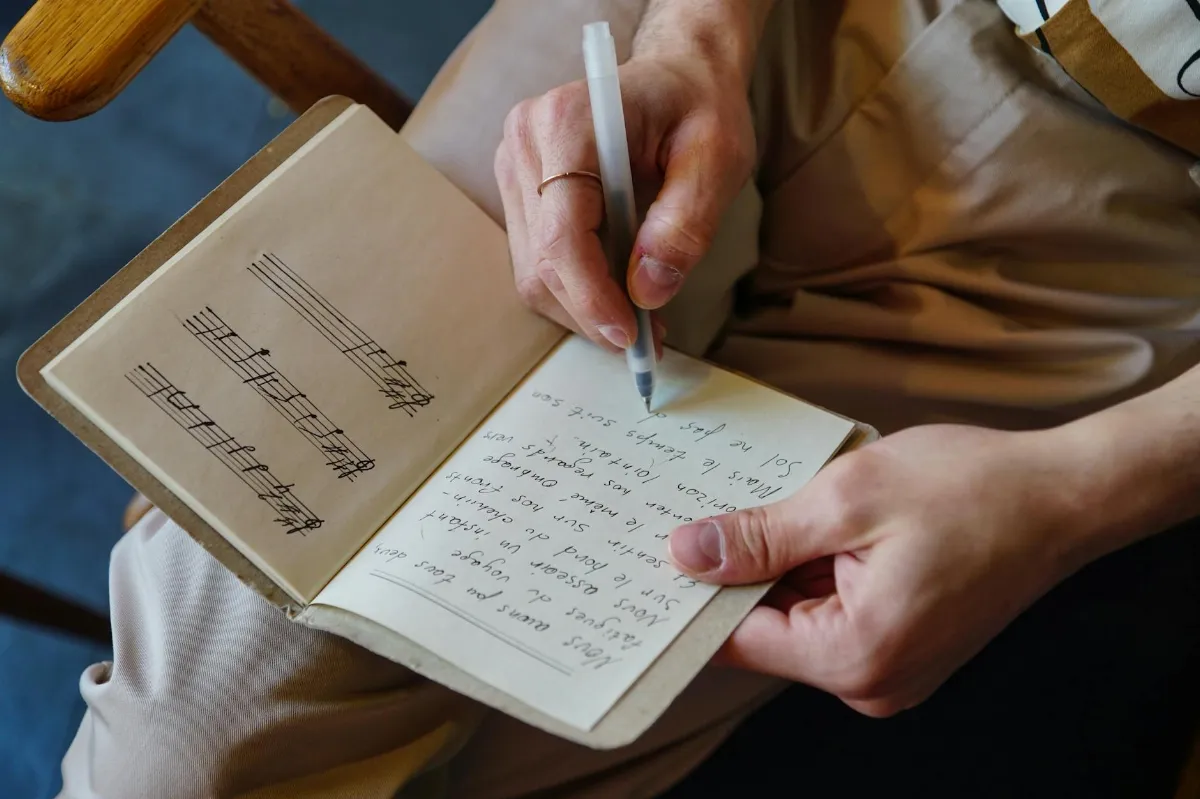 Nous avons pu tous deux
fatigués du voyage
Nous asseoir un instant
sur le bord du chemin-
Et sentir sur nos fronts
le même ombrage
nos regards vers
orizon lointain.
Mais le temps suit son
Sol ne pas